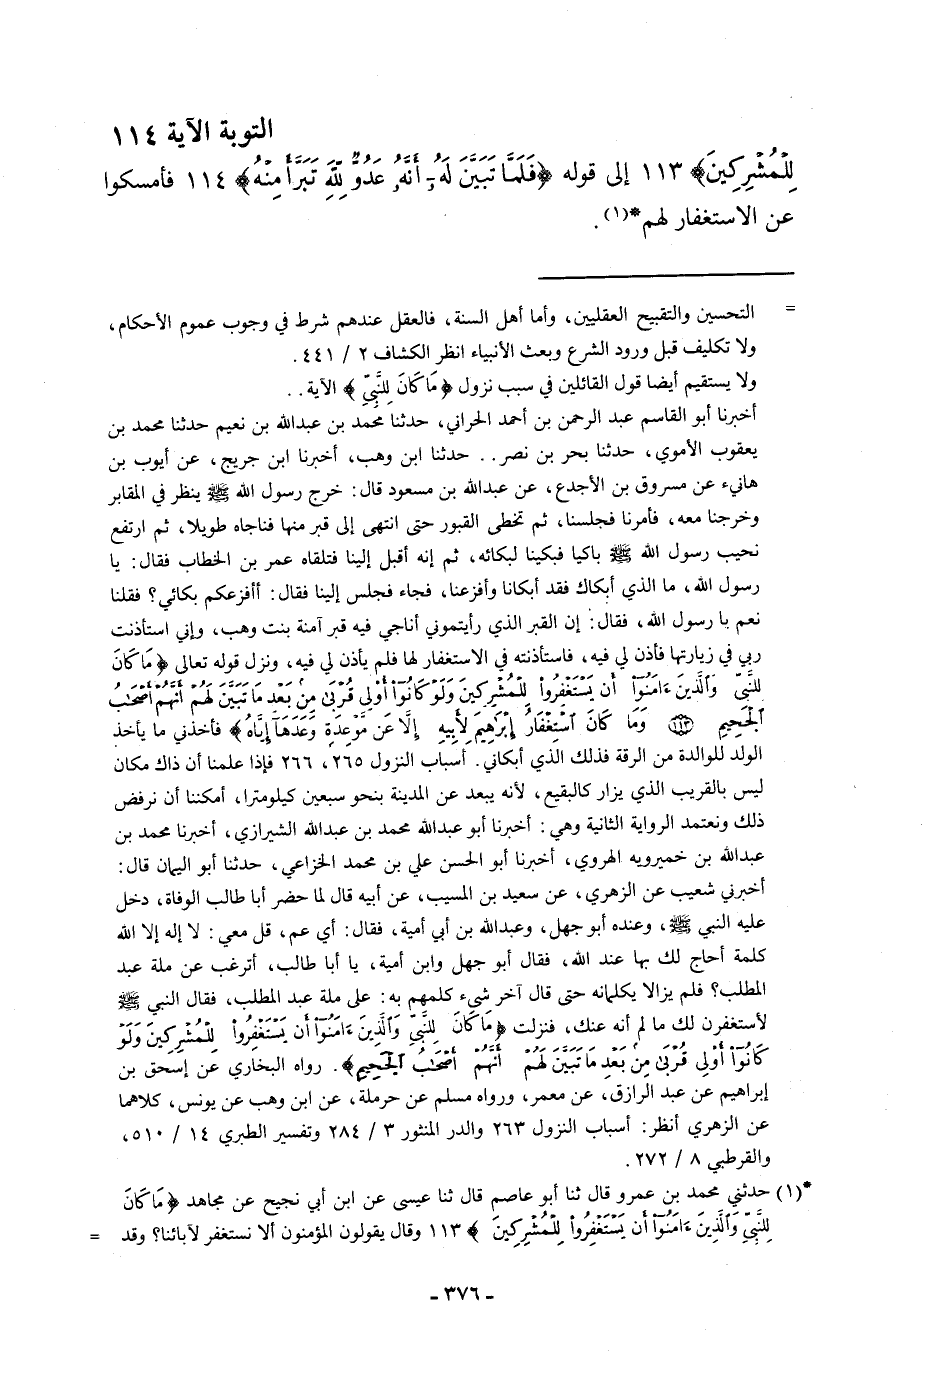 التوبة الآية ١١٤
لِلْمُشْرِكِينَ﴾ ١١٣ إلى قوله ﴿فَلَمَّا تَبَيَّنَ لَهُۥٓ أَنَّهُۥ عَدُوٌّ لِّلَّهِ تَبَرَّأَ مِنْهُ﴾ ١١٤ فأمسكوا
عن الاستغفار لهم*(١).
= التحسين والتقبيح العقليين، وأما أهل السنة، فالعقل عندهم شرط في وجوب عموم الأحكام،
ولا تكليف قبل ورود الشرع وبعث الأنبياء انظر الكشاف ٢ / ٤٤١.
ولا يستقيم أيضا قول القائلين في سبب نزول ﴿مَا كَانَ لِلنَّبِيِّ﴾ الآية..
أخبرنا أبو القاسم عبد الرحمن بن أحمد الحراني، حدثنا محمد بن عبدالله بن نعيم حدثنا محمد بن
يعقوب الأموي، حدثنا بحر بن نصر.. حدثنا ابن وهب، أخبرنا ابن جريج، عن أيوب بن
هانيء عن مسروق بن الأجدع، عن عبدالله بن مسعود قال: خرج رسول الله ﷺ ينظر في المقابر
وخرجنا معه، فأمرنا فجلسنا، ثم تخطى القبور حتى انتهى إلى قبر منها فناجاه طويلا، ثم ارتفع
نحيب رسول الله ﷺ باكيا فبكينا لبكائه، ثم إنه أقبل إلينا فتلقاه عمر بن الخطاب فقال: يا
رسول الله، ما الذي أبكاك فقد أبكانا وأفزعنا، فجاء فجلس إلينا فقال: أأفزعكم بكائي؟ فقلنا
نعم يا رسول الله، فقال: إن القبر الذي رأيتموني أناجي فيه قبر آمنة بنت وهب، وإني استأذنت
ربي في زيارتها فأذن لي فيه، فاستأذنته في الاستغفار لها فلم يأذن لي فيه، ونزل قوله تعالى ﴿مَا كَانَ
لِلنَّبِيِّ وَٱلَّذِينَ ءَامَنُوٓا۟ أَن يَسْتَغْفِرُوا۟ لِلْمُشْرِكِينَ وَلَوْ كَانُوٓا۟ أُو۟لِى قُرْبَىٰ مِنۢ بَعْدِ مَا تَبَيَّنَ لَهُمْ أَنَّهُمْ أَصْحَٰبُ
ٱلْجَحِيمِ ١١٣ وَمَا كَانَ ٱسْتِغْفَارُ إِبْرَٰهِيمَ لِأَبِيهِ إِلَّا عَن مَّوْعِدَةٍ وَعَدَهَآ إِيَّاهُ﴾ فأخذني ما يأخذ
الولد للوالدة من الرقة فذلك الذي أبكاني. أسباب النزول ٢٦٥، ٢٦٦ فإذا علمنا أن ذاك مكان
ليس بالقريب الذي يزار كالبقيع، لأنه يبعد عن المدينة بنحو سبعين كيلومترا، أمكننا أن نرفض
ذلك ونعتمد الرواية الثانية وهي: أخبرنا أبو عبدالله محمد بن عبدالله الشيرازي، أخبرنا محمد بن
عبدالله بن خميرويه الهروي، أخبرنا أبو الحسن علي بن محمد الخزاعي، حدثنا أبو اليمان قال:
أخبرني شعيب عن الزهري، عن سعيد بن المسيب، عن أبيه قال لما حضر أبا طالب الوفاة، دخل
عليه النبي ﷺ، وعنده أبو جهل، وعبدالله بن أبي أمية، فقال: أي عم، قل معي: لا إله إلا الله
كلمة أحاج لك بها عند الله، فقال أبو جهل وابن أمية، يا أبا طالب، أترغب عن ملة عبد
المطلب؟ فلم يزالا يكلمانه حتى قال آخر شيء كلمهم به: على ملة عبد المطلب، فقال النبي ﷺ
لأستغفرن لك ما لم أنه عنك، فنزلت ﴿مَا كَانَ لِلنَّبِيِّ وَٱلَّذِينَ ءَامَنُوٓا۟ أَن يَسْتَغْفِرُوا۟ لِلْمُشْرِكِينَ وَلَوْ
كَانُوٓا۟ أُو۟لِى قُرْبَىٰ مِنۢ بَعْدِ مَا تَبَيَّنَ لَهُمْ أَنَّهُمْ أَصْحَٰبُ ٱلْجَحِيمِ﴾. رواه البخاري عن إسحق بن
إبراهيم عن عبد الرازق، عن معمر، ورواه مسلم عن حرملة، عن ابن وهب عن يونس، كلاهما
عن الزهري أنظر: أسباب النزول ٢٦٣ والدر المنثور ٣ / ٢٨٤ وتفسير الطبري ١٤ / ٥١٠،
والقرطبي ٨ / ٢٧٢.
*(١) حدثني محمد بن عمرو قال ثنا أبو عاصم قال ثنا عيسى عن ابن أبي نجيح عن مجاهد ﴿مَا كَانَ
لِلنَّبِيِّ وَٱلَّذِينَ ءَامَنُوٓا۟ أَن يَسْتَغْفِرُوا۟ لِلْمُشْرِكِينَ﴾ ١١٣ وقال يقولون المؤمنون ألا نستغفر لآبائنا؟ وقد =
- ٣٧٦ -